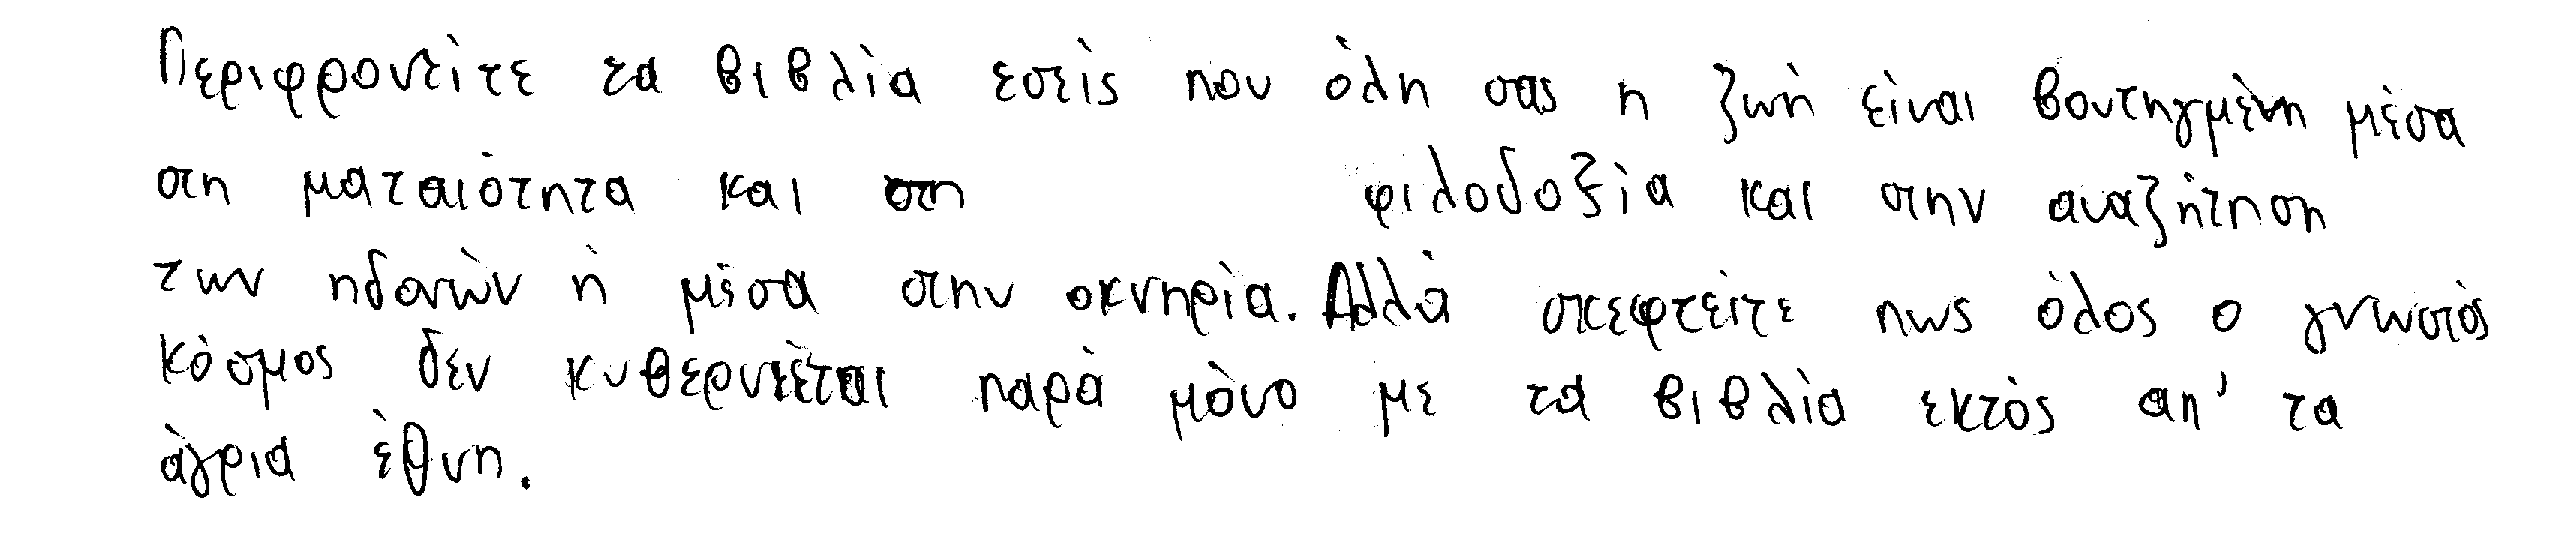 Περιφροντίτε τα βιβλία εσείς που όλη σας η ζωή είναι βουτηγμένη μέσα
στη ματαιότητα και στη φιλοδοξία και στην αναζήτηση
των ηδονών ή μέσα στην οκνηρία. Αλλά σκεφτείτε πως όλος ο γνωστός
κόσμος δεν κυβερνιέται παρά μόνο με τα βιβλία εκτός απ' τα
άγρια έθνη.